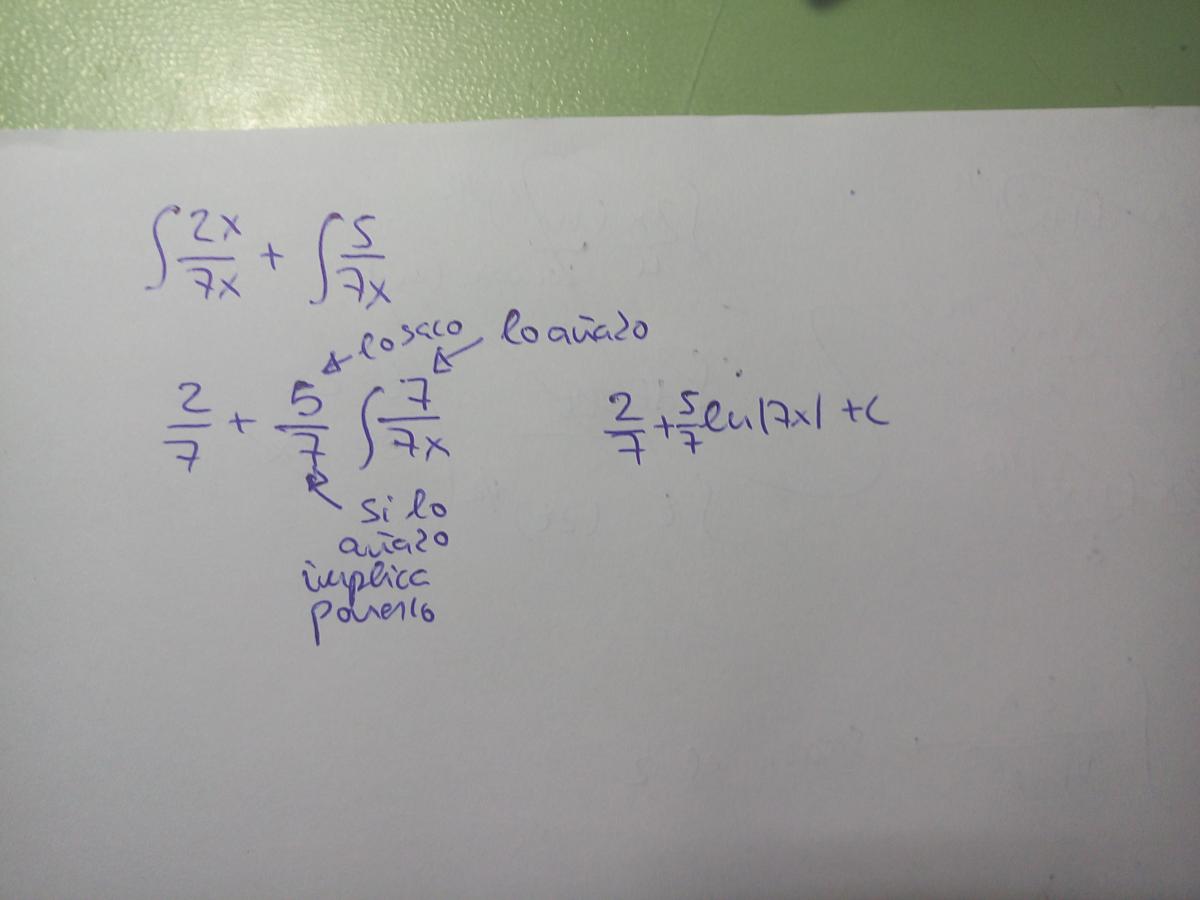 ∫ 2x/7x + ∫ 5/7x
lo saco
lo añado
2/7 + 5/7 ∫ 7/7x
2/7 + 5/7 ln|7x| + C
si lo
añado
implica
ponerlo